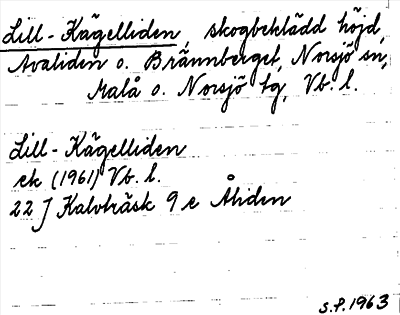 Lill-Kägelliden, skogbeklädd höjd,
Avaliden o. Brännberget, Norsjö sn,
Malå o. Norsjö tg, Vb. l.
Lill-Kägelliden
ek (1961) Vb. l.
22 J Kalvträsk 9 e Åliden
S.P. 1963